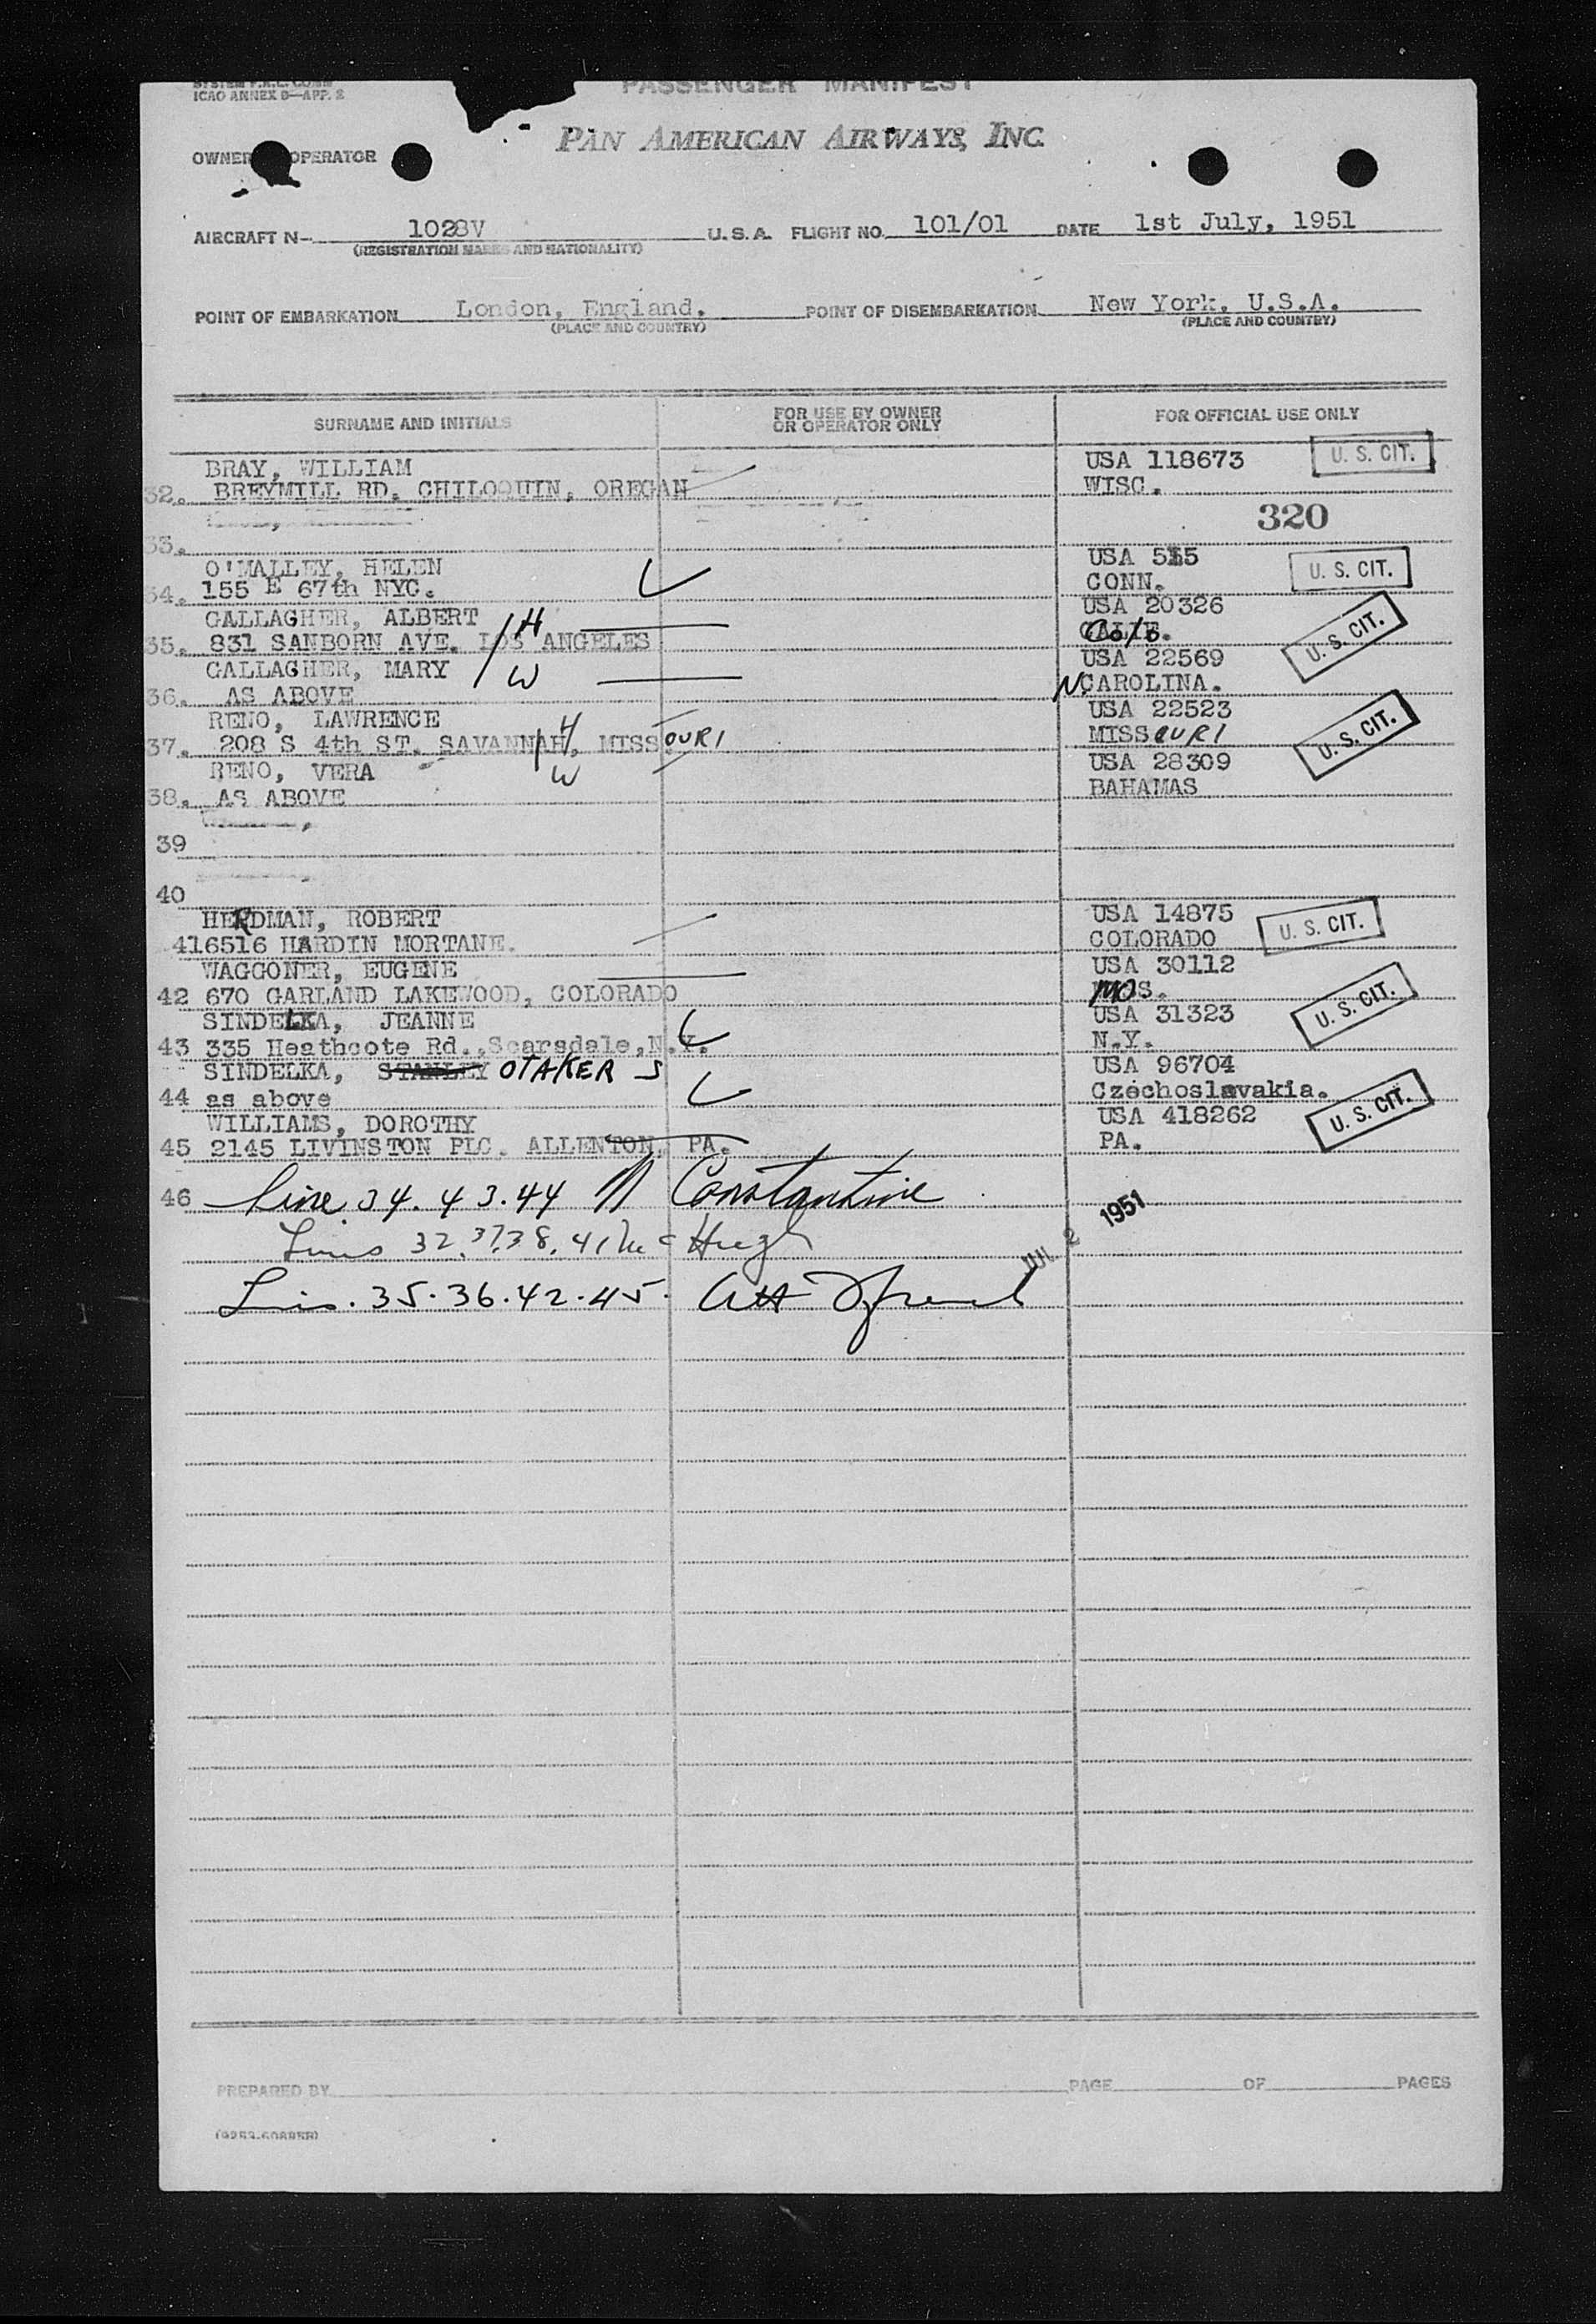 ICAO ANNEX 9—APP. 2
PASSENGER MANIFEST
PAN AMERICAN AIRWAYS, INC.
OWNER OPERATOR
AIRCRAFT N- 1028V U.S.A. FLIGHT NO. 101/01 DATE 1st July, 1951
(REGISTRATION MARKS AND NATIONALITY)
POINT OF EMBARKATION London, England. POINT OF DISEMBARKATION New York, U.S.A.
(PLACE AND COUNTRY) (PLACE AND COUNTRY)
SURNAME AND INITIALS FOR USE BY OWNER OR OPERATOR ONLY FOR OFFICIAL USE ONLY
BRAY, WILLIAM USA 118673 U. S. CIT.
32. BREYMILL RD. CHILOQUIN, OREGAN WISC.
320
33.
O'MALLEY, HELEN USA 515 U. S. CIT.
34. 155 E 67th NYC. CONN.
GALLAGHER, ALBERT H USA 20326
35. 831 SANBORN AVE. LOS ANGELES Colo. U. S. CIT.
GALLAGHER, MARY W USA 22569
36. AS ABOVE N. CAROLINA.
RENO, LAWRENCE H USA 22523
37. 208 S 4th ST. SAVANNAH, MISSOURI MISSOURI U. S. CIT.
RENO, VERA W USA 28309
38. AS ABOVE BAHAMAS
39
40
HERDMAN, ROBERT USA 14875
416516 HARDIN MORTANE. COLORADO U. S. CIT.
WAGGONER, EUGENE USA 30112
42 670 GARLAND LAKEWOOD, COLORADO MOS.
SINDELKA, JEANNE USA 31323 U. S. CIT.
43 335 Heathcote Rd.,Scarsdale,N.Y. N.Y.
SINDELKA, STANLEY OTAKER S USA 96704
44 as above Czechoslavakia.
WILLIAMS, DOROTHY USA 418262 U. S. CIT.
45 2145 LIVINSTON PLC. ALLENTON, PA. PA.
46 Line 34. 43. 44 N Constantine
JUL 2 1951
Lines 32, 37, 38, 41 McHugh
Lines. 35. 36. 42. 45.
PREPARED BY PAGE OF PAGES